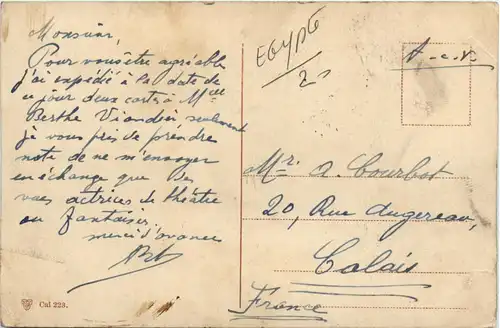 Monsieur,
Pour vous être agréable
j'ai expédié à la date de
ce jour deux cartes à Melle
Berthe Viandier, seulement
je vous pris de prendre
note de ne m'envoyer
en échange que des
vues actrices de théâtre
ou fantaisie.
merci d'avance
Cal 223.
EGYPTE
2
Mr. A. Courbot
20, Rue Augereau,
Calais
France